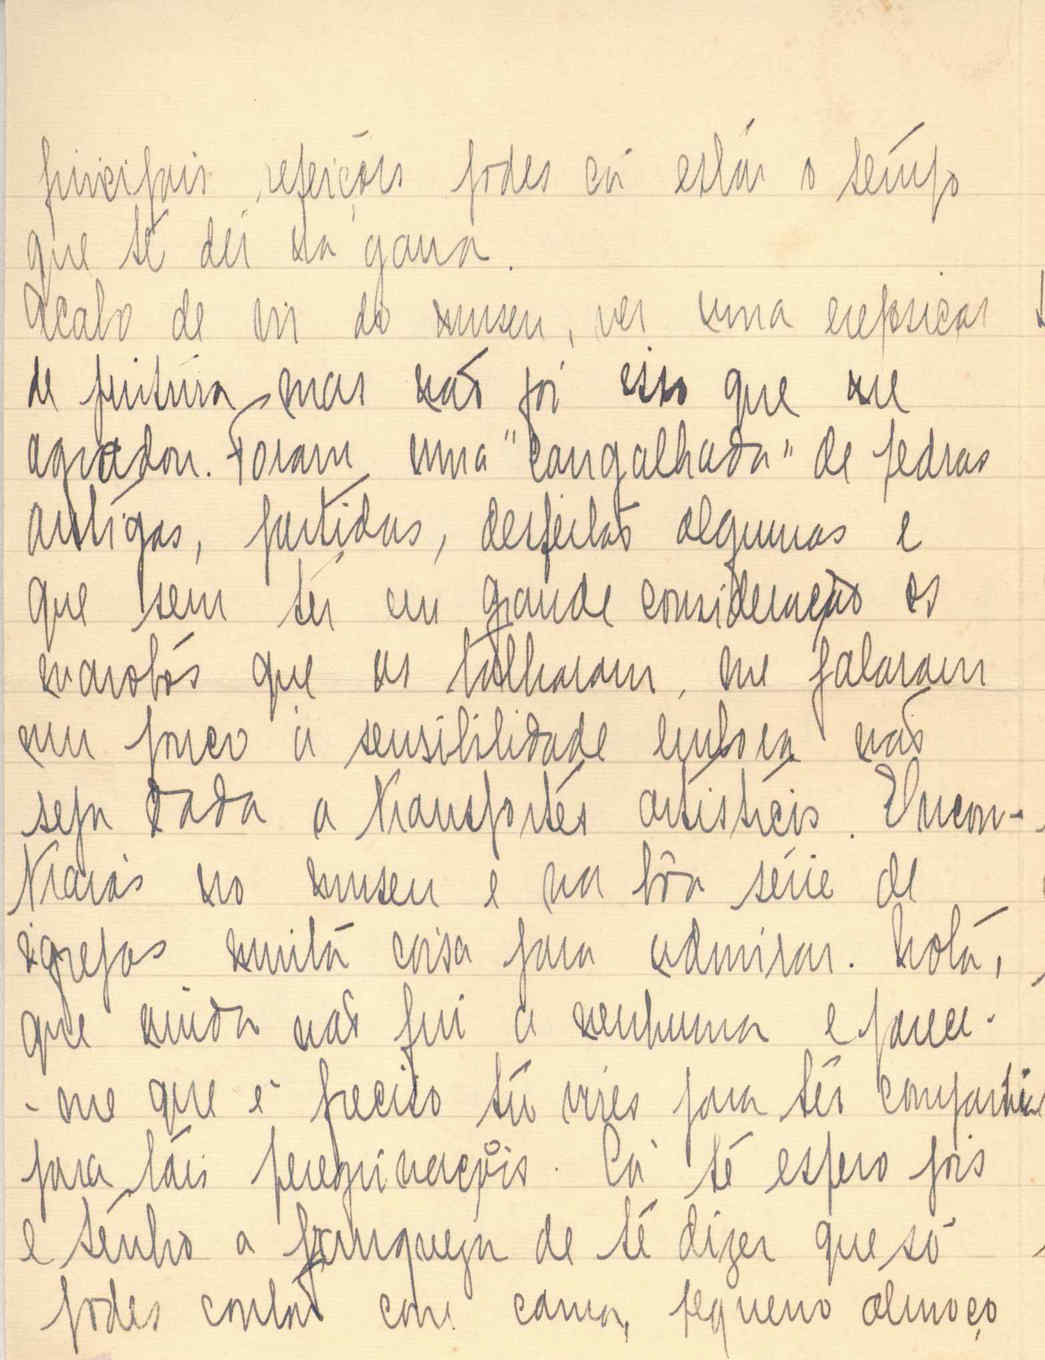 principais refeições podes cá estár o tempo
que te dér na gana.
Acabo de vir do museu, ver uma exposiçao
de pintura mas não foi isso que me
agradou. Foram uma "cangalhada" de pedras
antigas, partidas, desfeitas algumas e
que sem ter em grande consideração os
marotos que as talharam, me falaram
um pouco à sensibilidade embora não
seja dada a transportes artisticos. Encon-
trarás no museu e na bôa série de
igrejas muita coisa para admirar. Nota,
que ainda não fui a nenhuma e parece-
-me que é preciso tu vires para ter companhia
para tais peregrinações. Cá te espero pois
e tenho a franqueza de te dizer que só
podes contar com cama, pequeno almoço